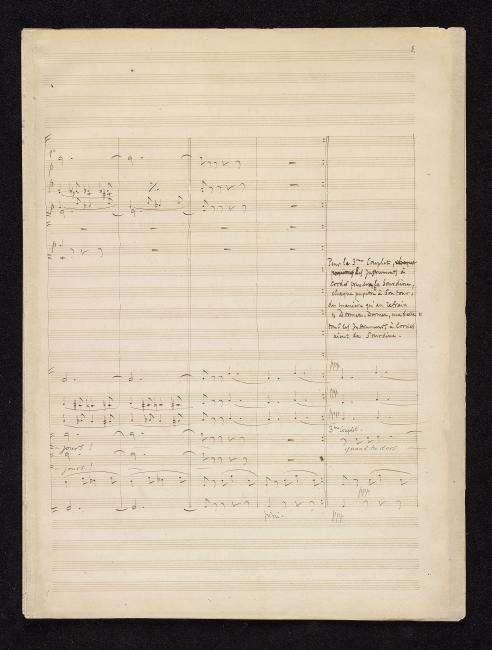 8.
Pour le 3me Couplet, chaque
les Instruments à
cordes prendra la Sourdine,
chaque pupitre à Son tour,
de manière qu'au refrain
"Dormez, Dormez, ma belle"
tous les Instruments à Cordes
aient la Sourdine.
ppp
ppp
ppp
3me Couplet.
jours!
quand tu dors
jours!
ppp
ppp